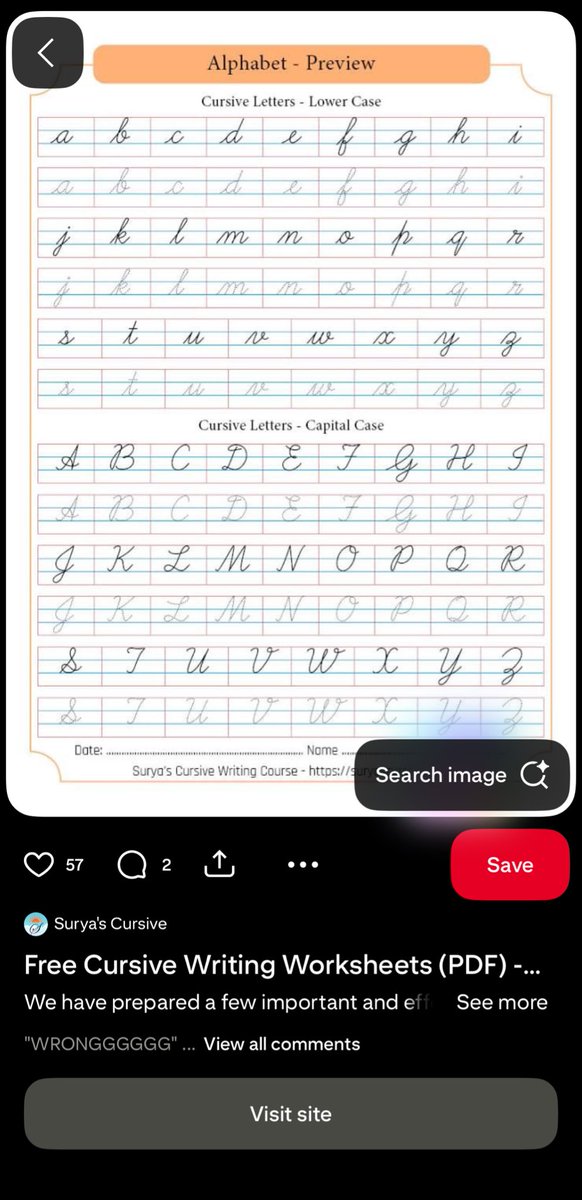 Alphabet - Preview
Cursive Letters - Lower Case
a b c d e f g h i
a b c d e f g h i
j k l m n o p q r
j k l m n o p q r
s t u v w x y z
s t u v w x y z
Cursive Letters - Capital Case
A B C D E F G H I
A B C D E F G H I
J K L M N O P Q R
J K L M N O P Q R
S T U V W X Y Z
S T U V W X Y Z
Date: ........ Name ........
Surya's Cursive Writing Course - https://
Search image
57 2 Save
Surya's Cursive
Free Cursive Writing Worksheets (PDF) -...
We have prepared a few important and eff See more
"WRONGGGGGG" ... View all comments
Visit site